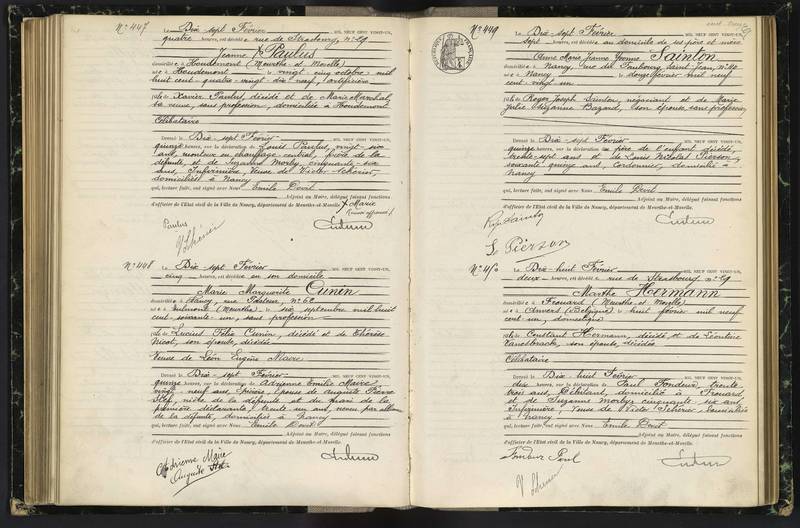 N° 447
Le Dix-sept Février MIL NEUF CENT VINGT-UN,
quatre heures, est décédée rue de Strasbourg, n° 29
Jeanne X Paulus
domiciliée à Houdemont (Meurthe et Moselle)
née à Houdemont le vingt-cinq octobre mil
huit cent quatre-vingt dix neuf,
fille de Xavier Paulus, décédé et de Marie Marchal,
sa veuve, sans profession, domiciliée à Houdemont
Célibataire
Dressé le Dix-sept Février
quinze heures, sur la déclaration de Louis Paulus, vingt-six
ans, monteur en chauffage central, frère de la
défunte et de Suzanne Morby, cinquante-six
ans, Infirmière, Veuve de Victor Scherier,
domiciliés à Nancy
qui, lecture faite, ont signé avec Nous Emile Devit
Adjoint au Maire, délégué faisant fonctions
d'officier de l'État civil de la Ville de Nancy, département de Meurthe-et-Moselle.
X Marie
Paulus
N° 448
Le Dix-sept Février MIL NEUF CENT VINGT-UN,
cinq heures, est décédée en son domicile
Marie Marguerite Cunin
domiciliée à Nancy, rue n° 62
née à (Meurthe) le six septembre mil huit
cent soixante-un, sans profession
fille de Lucien Félix Cunin, décédé et de Thérèse
Nicol, son épouse, décédée
Veuve de Léon Eugène Maire
Dressé le Dix-sept Février
quinze heures, sur la déclaration de Adrienne Emilie Maire
vingt neuf ans, épouse de Auguste Pierre
nièce de la défunte et du mari de la
première déclarante, trente un ans, neveu par alliance
de la défunte, domiciliés à Nancy
qui, lecture faite, ont signé avec Nous Emile Devit
Adjoint au Maire, délégué faisant fonctions
d'officier de l'État civil de la Ville de Nancy, département de Meurthe-et-Moselle.
Adrienne Maire
Auguste
N° 449
Le Dix-sept Février MIL NEUF CENT VINGT-UN,
sept heures, est décédée au domicile de ses père et mère
Anne Marie Jeanne Yvonne Sainton
domiciliée à Nancy, rue du Faubourg Saint Jean, n° 40
née à Nancy le douze février mil neuf
cent vingt un
fille de Roger Joseph Sainton, négociant et de Marie
Julie Suzanne Bazard, son épouse, sans profession
Dressé le Dix-sept Février
quinze heures, sur la déclaration du père de l'enfant décédé,
trente-sept ans et de Louis Nicolas Pierson,
soixante quinze ans, Cordonnier, domiciliés à
Nancy
qui, lecture faite, ont signé avec Nous Emile Devit
Adjoint au Maire, délégué faisant fonctions
d'officier de l'État civil de la Ville de Nancy, département de Meurthe-et-Moselle.
Pierson
N° 450
Le Dix-huit Février MIL NEUF CENT VINGT-UN,
deux heures, est décédée rue de Strasbourg n° 29
Marthe Hermann
domiciliée à Frouard (Meurthe et Moselle)
née à Anvers (Belgique) le huit février mil neuf
cent un, domestique
fille de Constant Hermann, décédé et de Léontine
Vanesbrack, son épouse, décédée
Célibataire
Dressé le Dix-huit Février
dix heures, sur la déclaration de Paul Fondeur, trente
trois ans, domicilié à Frouard
et de Suzanne Morby, cinquante six ans,
Infirmière, Veuve de Victor Scherier, domiciliée
à Nancy
qui, lecture faite, ont signé avec Nous Emile Devit
Adjoint au Maire, délégué faisant fonctions
d'officier de l'État civil de la Ville de Nancy, département de Meurthe-et-Moselle.
Fondeur Paul